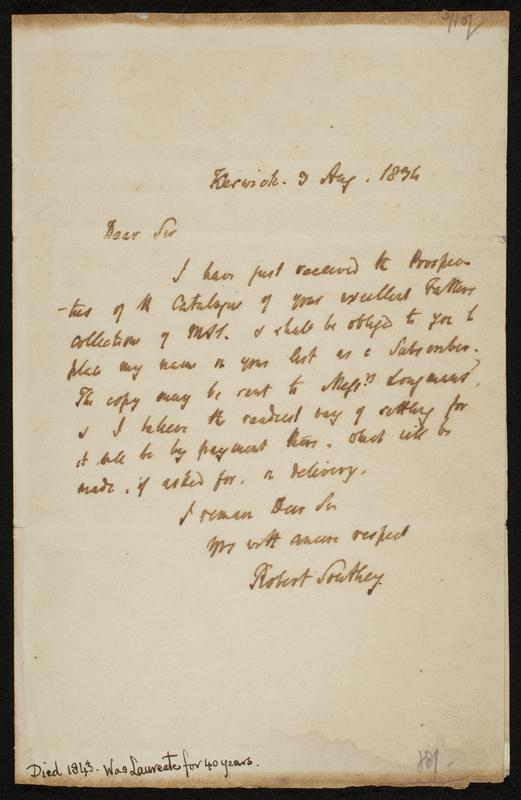 Keswick. 3 Aug. 1834
Dear Sir
I have just received the Prospec-
-tus of the Catalogue of your excellent Fathers
collection of MSS. & shall be obliged to you to
place my name on your list as a Subscriber.
The copy may be sent to Messrs Longmans',
& I believe the readiest way of settling for
it will be by payment there, which will be
made, if asked for, on delivery.
I remain Dear Sir
Yrs with sincere respect
Robert Southey.
Died 1843. Was Laureate for 40 years.